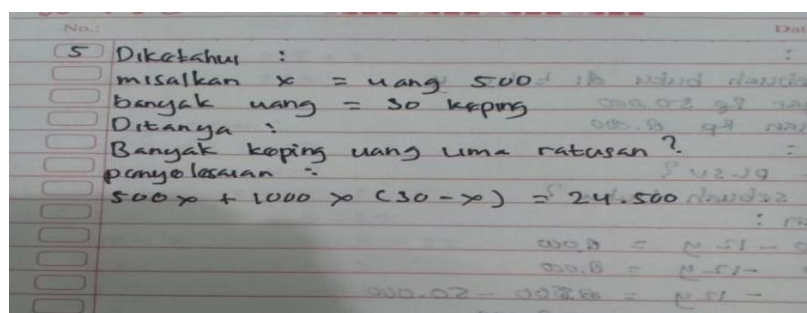 No.:
5 Diketahui :
misalkan x = uang 500
banyak uang = 30 keping
Ditanya :
Banyak keping uang lima ratusan ?
penyelesaian :
500x + 1000 x (30 - x) = 24.500